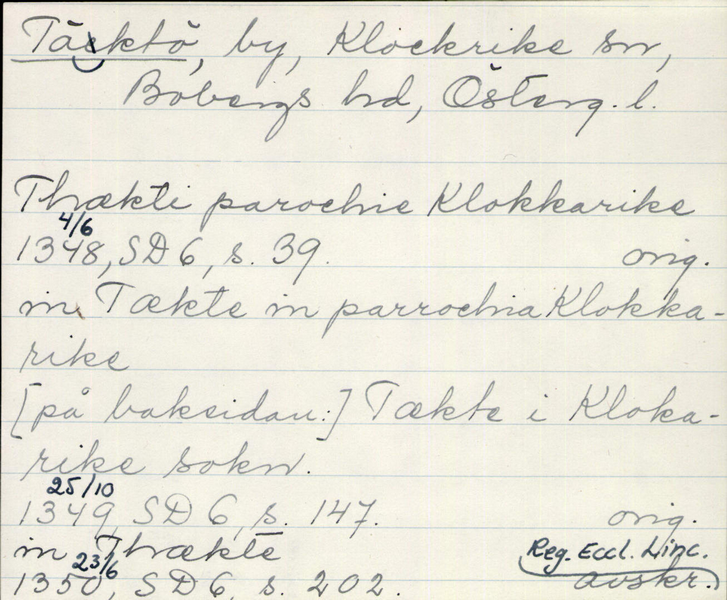 Täsktö, by, Klockrike sn,
Bobergs hd, Österg. l.
Thækti parochie Klokkarike
4/6
1348, SD 6, s. 39. orig.
in Tækte in parrochia Klokka-
rike
[på baksidan:] Tækte i Kloka-
rike sokn.
25/10
1349, SD 6, s. 147. orig.
in Thækte Reg. Eccl. Linc.
23/6
1350, SD 6, s. 202. avskr.